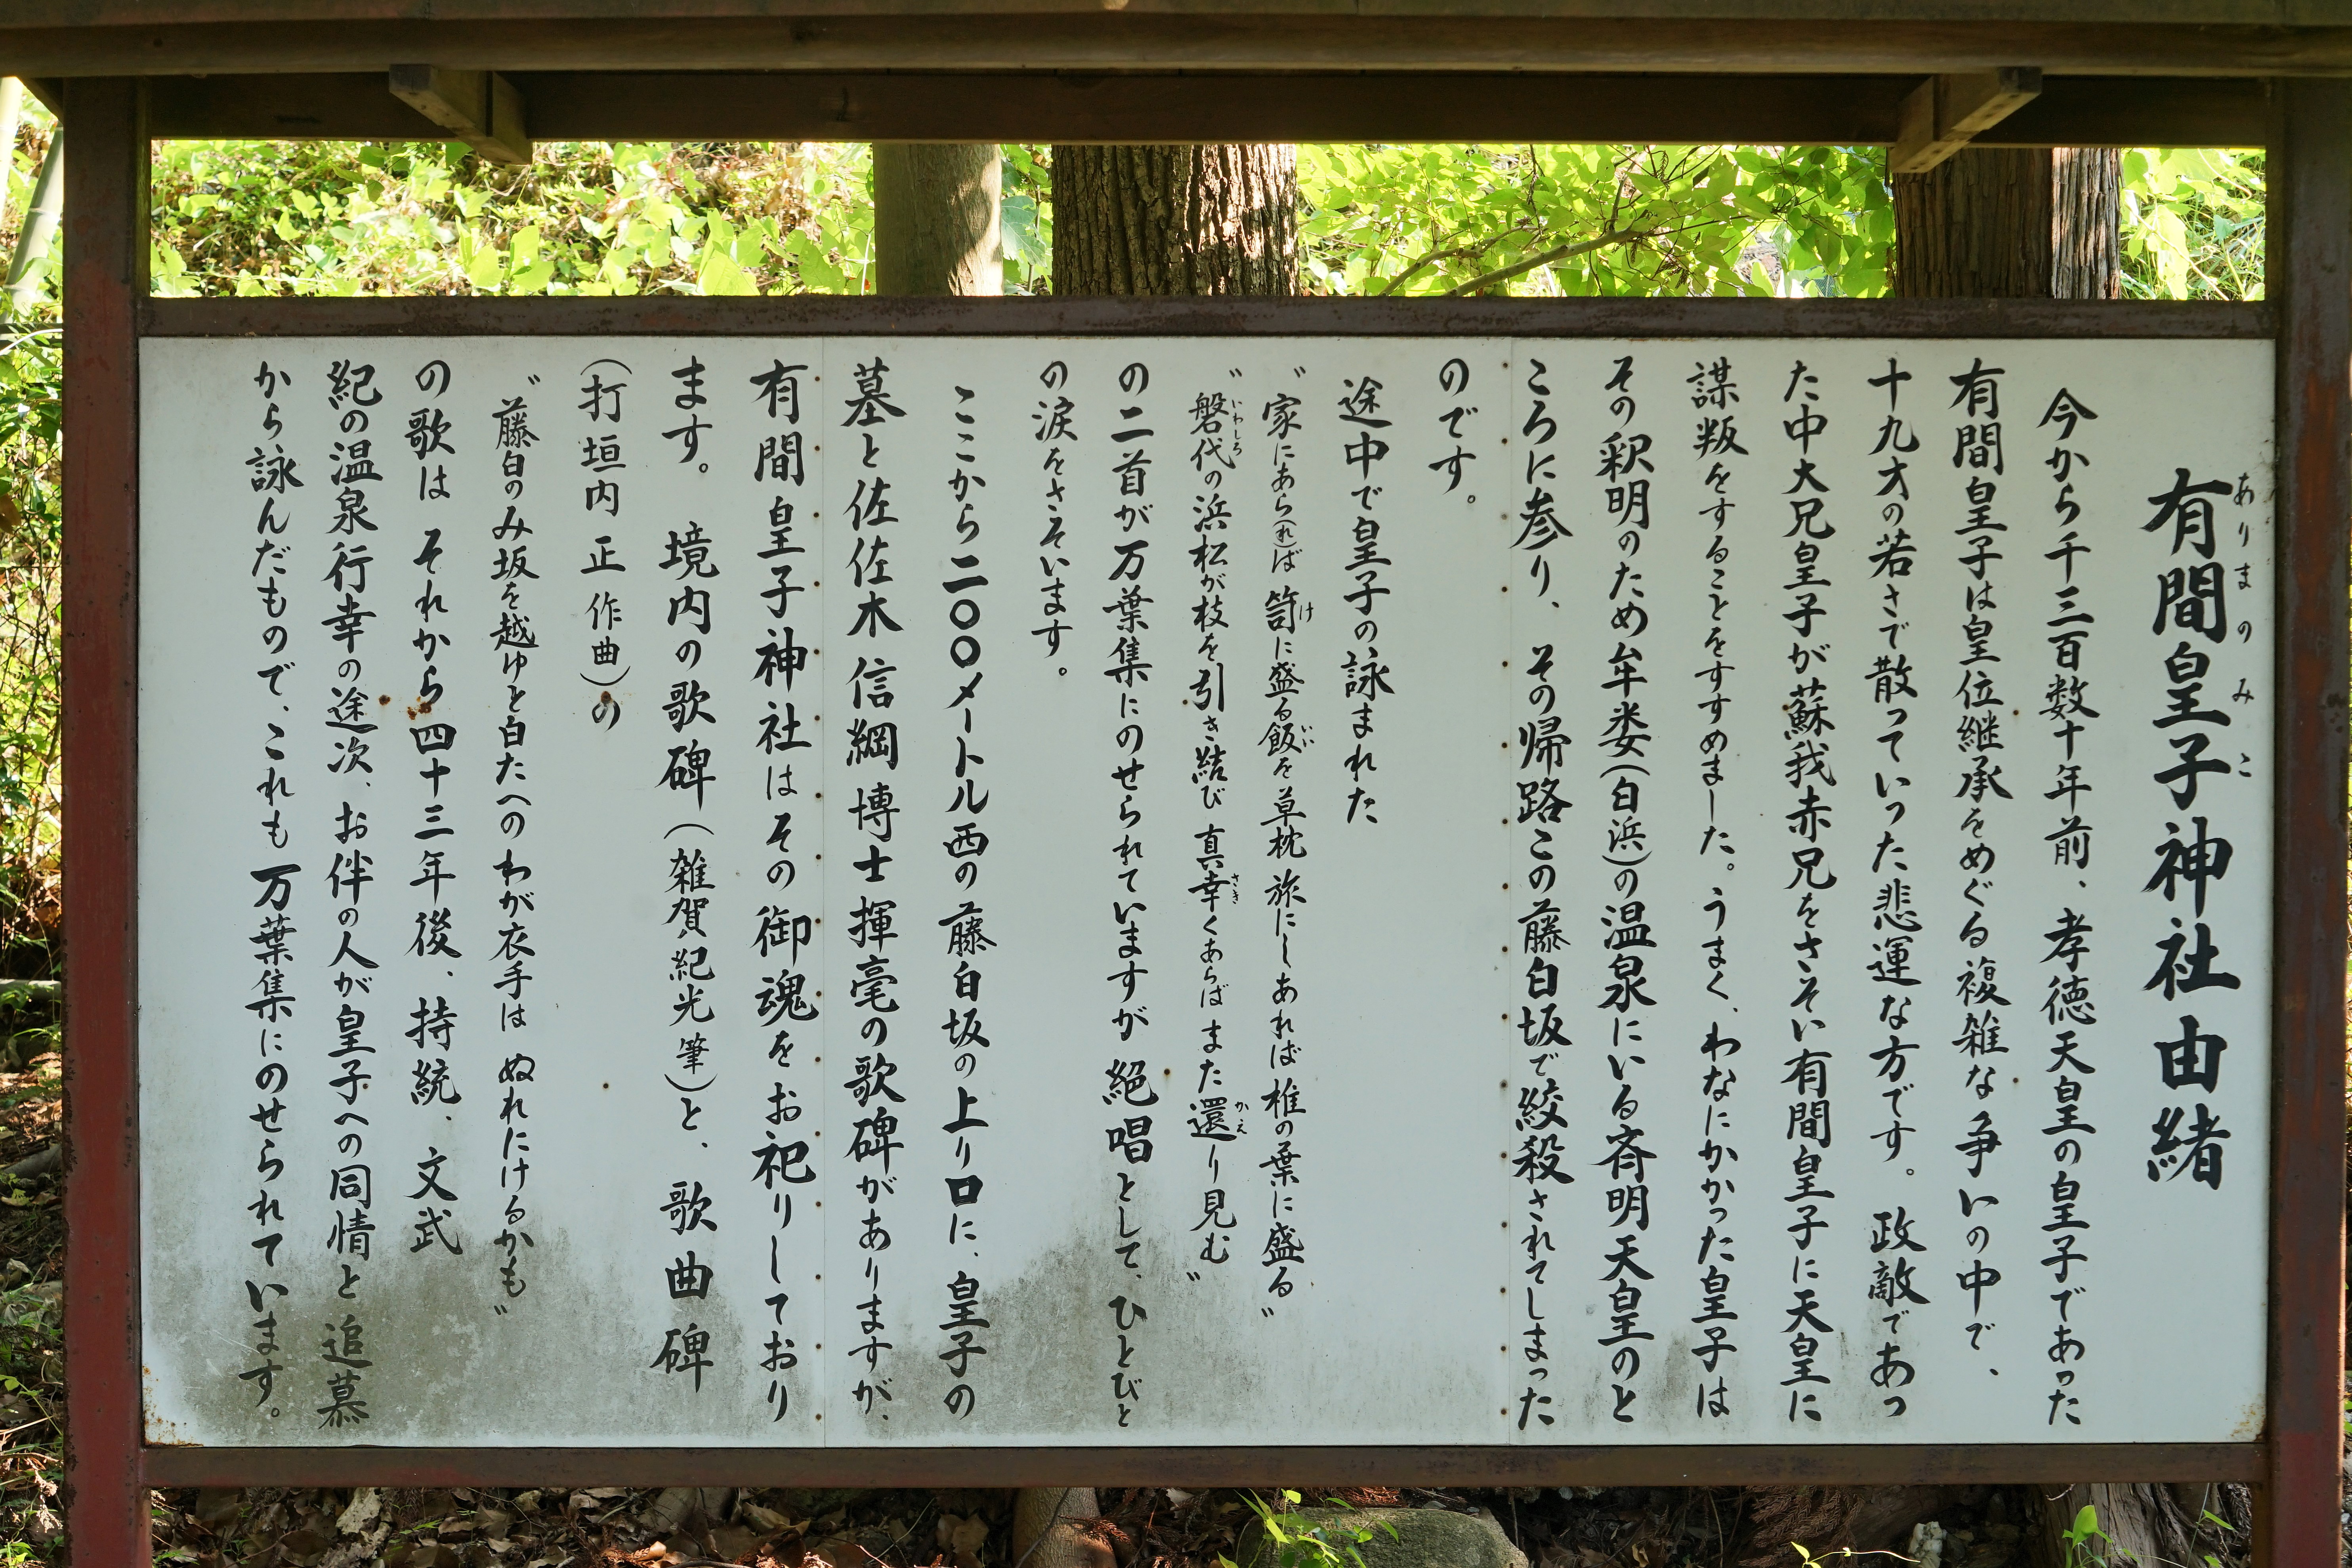 有間皇子神社由緒
ありまのみこ
今から千三百数十年前、孝徳天皇の皇子であった
有間皇子は皇位継承をめぐる複雑な争いの中で、
十九才の若さで散っていった悲運な方です。政敵であっ
た中大兄皇子が蘇我赤兄をさそい有間皇子に天皇に
謀叛をすることをすすめました。うまく、わなにかかった皇子は
その釈明のため牟婁(白浜)の温泉にいる斉明天皇のと
ころに参り、その帰路この藤白坂で絞殺されてしまった
のです。
途中で皇子の詠まれた
〝家にあら(れ)ば 笥に盛る飯を 草枕 旅にしあれば 椎の葉に盛る〟
け いい
〝磐代の浜松が枝を 引き結び 真幸くあらば また還り見む〟
いわしろ さき かえ
の二首が万葉集にのせられていますが 絶唱として、ひとびと
の涙をさそいます。
ここから二〇〇メートル西の藤白坂の上り口に、皇子の
墓と佐佐木信綱博士揮毫の歌碑がありますが、
有間皇子神社はその御魂をお祀りしており
ます。境内の歌碑(雑賀紀光筆)と、歌曲碑
(打垣内正作曲)の
〝藤白のみ坂を越ゆと白たへの わが衣手は ぬれにけるかも〟
の歌は それから四十三年後、持統、文武
紀の温泉行幸の途次、お伴の人が皇子への同情と追慕
から詠んだもので、これも万葉集にのせられています。